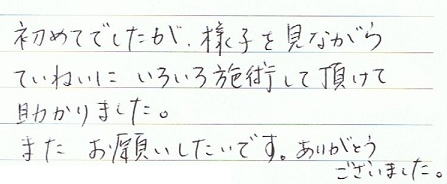 初めてでしたが、様子を見ながら
ていねいに いろいろ施術して頂けて
助かりました。
また お願いしたいです。ありがとう
ございました。